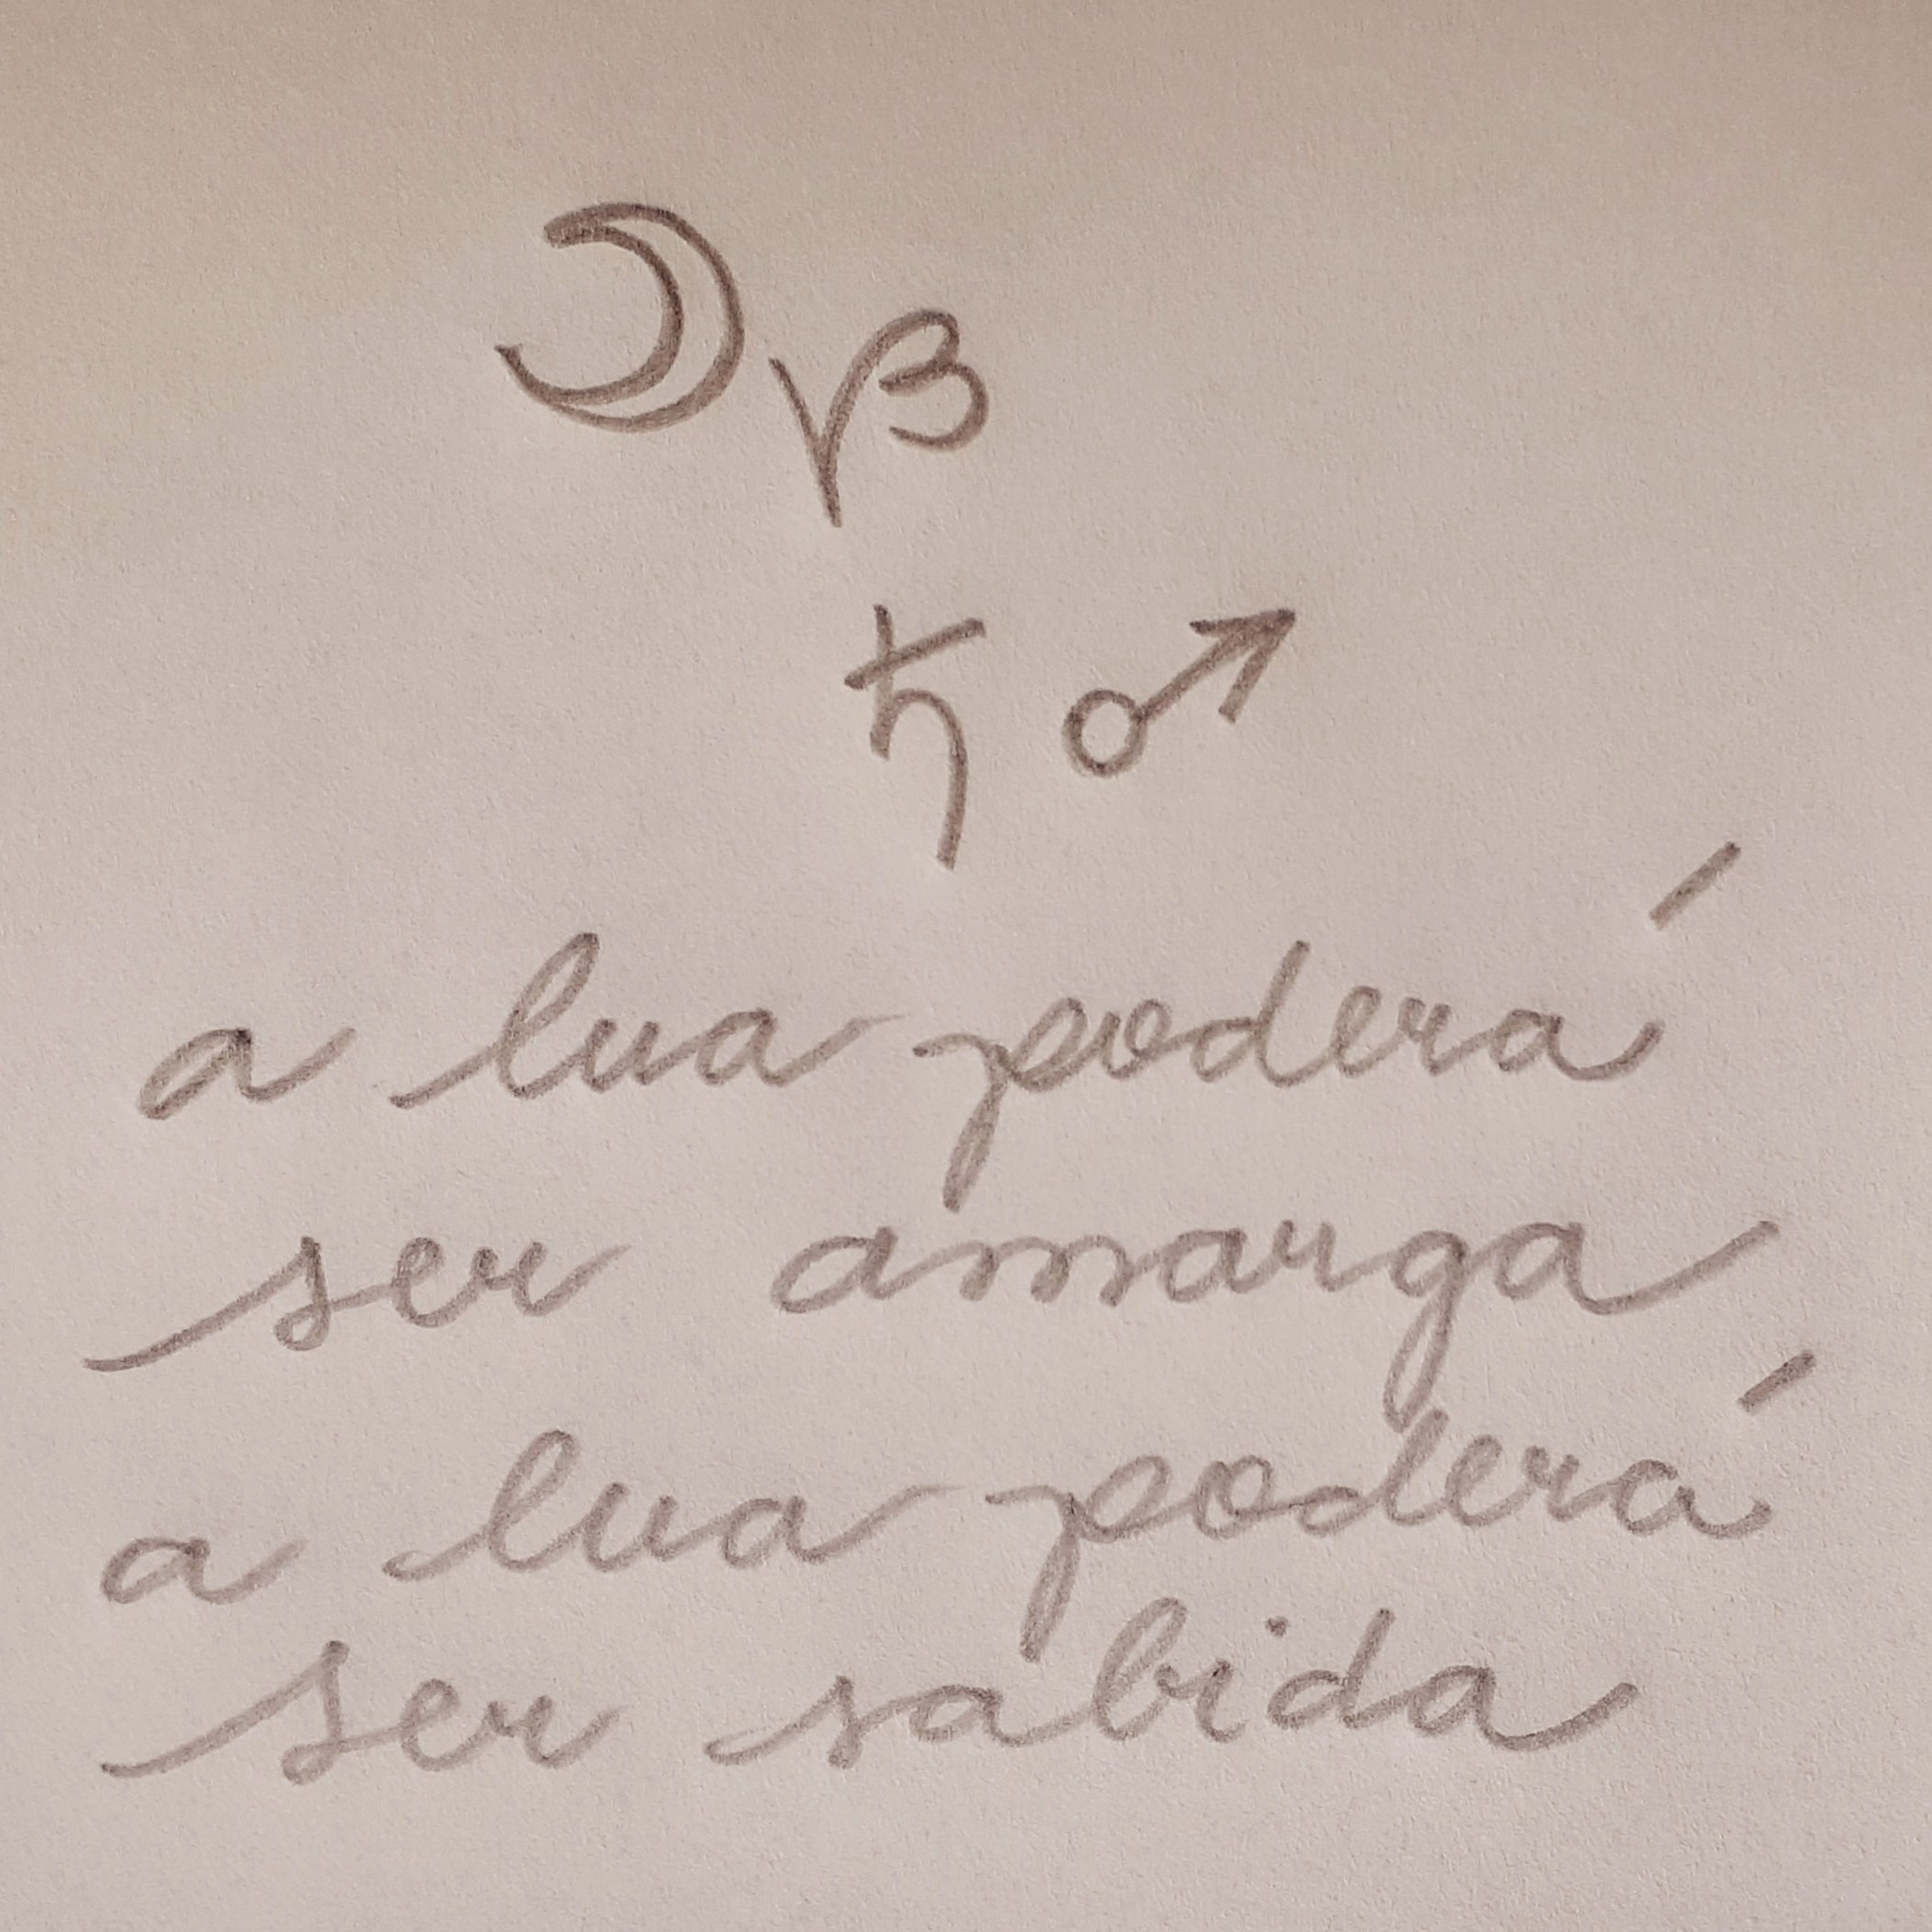 ☽ ♑
♄ ♂
a lua poderá
ser amarga
a lua poderá
ser sabida